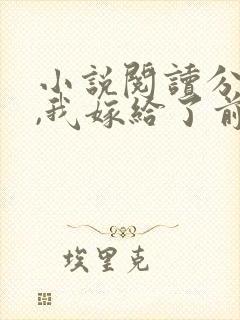 小說閱讀分
,我嫁給了前
埃里克